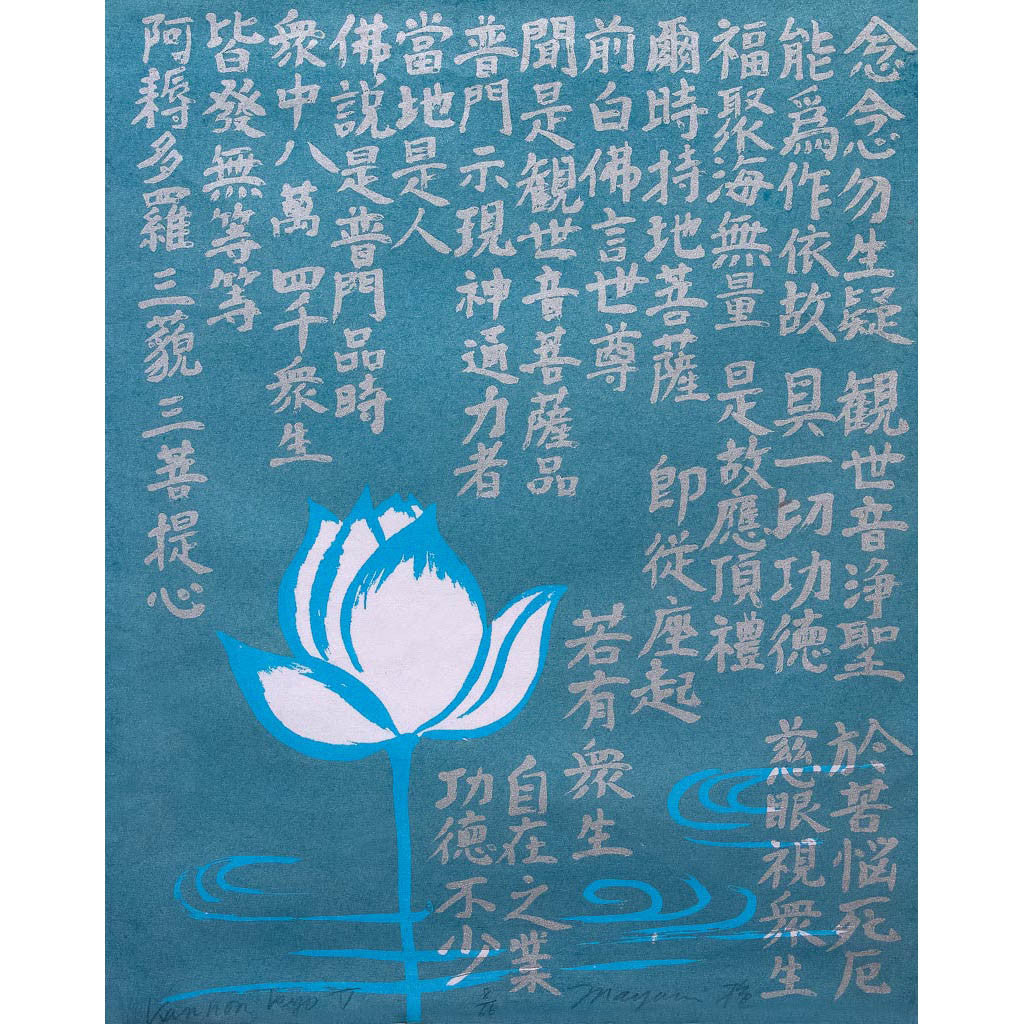 念念勿生疑 観世音浄聖 於苦悩死厄
能爲作依故 具一切功徳 慈眼視衆生
福聚海無量 是故應頂禮
爾時持地菩薩 即從座起
前白佛言世尊 若有衆生
聞是観世音菩薩品 自在之業
普門示現神通力者 功徳不少
當地是人
佛説是普門品時
衆中八萬四千衆生
皆發無等等
阿耨多羅三藐三菩提心
Kannon Kyo V
Mayumi